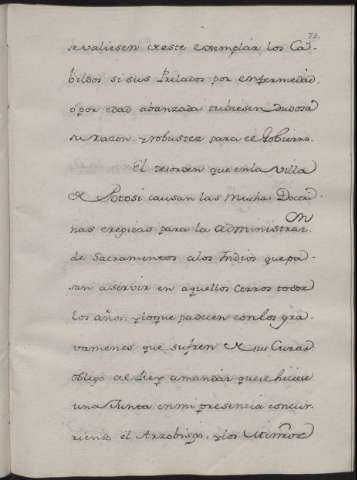 72.
se valiesen de este exemplar los Ca-
bildos si sus Prelados por enfermedad,
ó por edad abanzada tubiesen dudosa
su razon, y robustez para el Gobierno.
El desorden que en la Villa
de Potosi causan las muchas Doctri-
nas eregidas para la Administrar.on
de Sacramentos a los Indios que pa-
san a servir en aquellos Cerros todos
los años, y lo que padecen con los gra-
vamenes que sufren de sus Curas
obligó al Rey a mandar que se hiciese
una Junta en mi presencia concur-
riendo el Arzobispo, y los Ministros